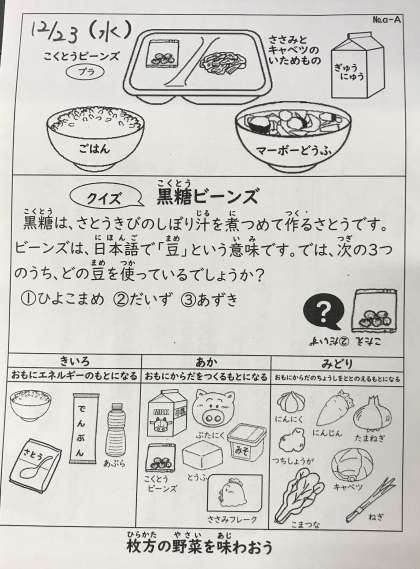 No.a-A
12/23(水)
こくとうビーンズ
プラ
ささみと
キャベツの
いためもの
ぎゅう
にゅう
ごはん
マーボーどうふ
クイズ 黒糖ビーンズ
こくとう
こくとう じる に つく
黒糖は、さとうきびのしぼり汁を煮つめて作るさとうです。
にほんご まめ いみ つぎ
ビーンズは、日本語で「豆」という意味です。では、次の3つ
まめ つか
のうち、どの豆を使っているでしょうか?
①ひよこまめ ②だいず ③あずき
?
こたえ ②だいず
きいろ
おもにエネルギーのもとになる
でんぷん
さとう
あぶら
あか
おもにからだをつくるもとになる
MILK
ぶたにく
こくとう
ビーンズ
とうふ
みそ
ささみフレーク
みどり
おもにからだのちょうしをととのえるもとになる
にんにく
にんじん
たまねぎ
つちしょうが
キャベツ
こまつな
ねぎ
ひらかた やさい あじ
枚方の野菜を味わおう